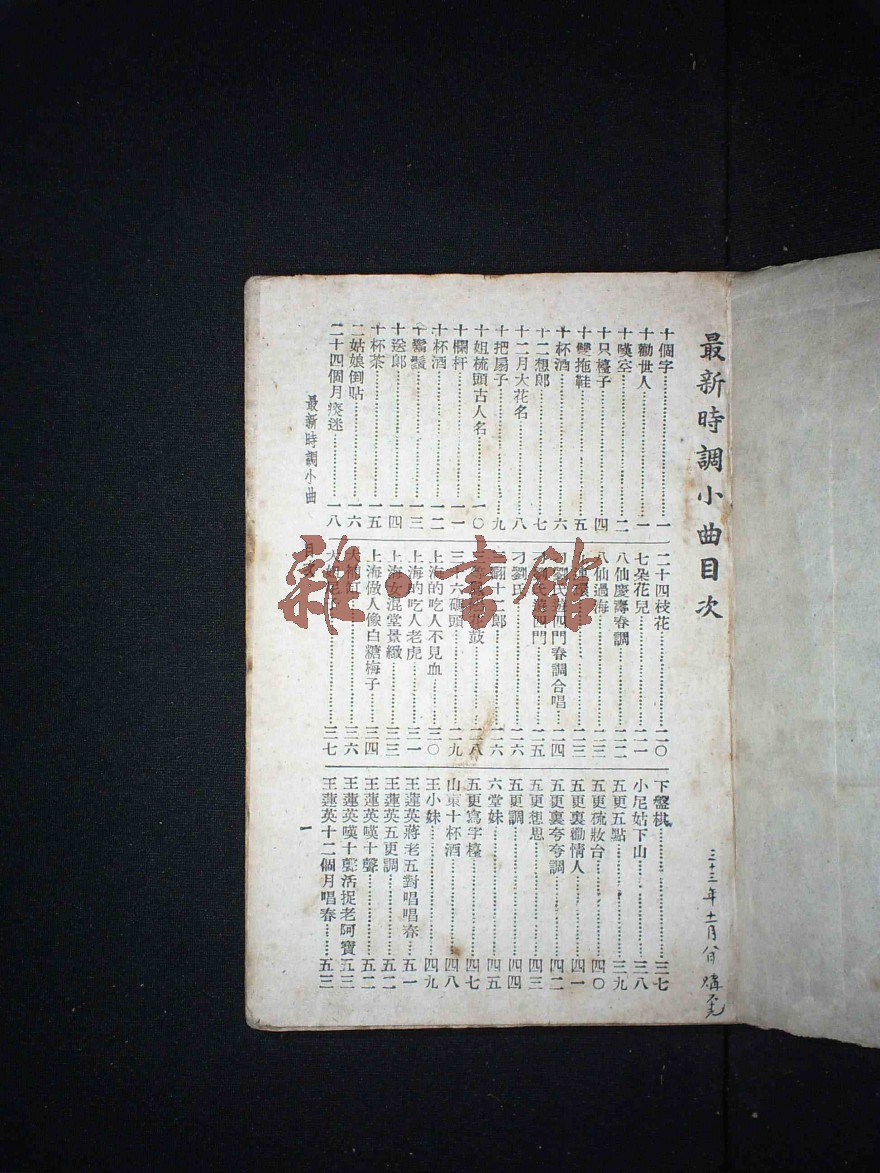 最新時調小曲目次
三十三年十一月
十個字……一
十勸世人……一
十嘆空……二
十只檯子……四
十雙拖鞋……五
十杯酒……六
十二想郎……七
十二月大花名……八
十把扇子……九
十姐梳頭古人名……一〇
十欄杆……一一
十杯酒……一二
十鬍鬚……一三
十送郎……一四
十杯茶……一五
二姑娘倒貼……一六
二十四個月痰迷……一八
二十四枝花……二〇
七朵花兒……二一
八仙慶壽春調……二二
八仙過海……二三
……二三
劉氏遊四門春調合唱……二四
劉氏遊四門……二五
刁劉氏……二六
翻十二郎……二六
花鼓……二八
三十六碼頭……二九
上海的吃人不見血……三〇
上海的吃人老虎……三一
上海女混堂景緻……三三
上海做人像白糖梅子……三四
大補缸……三六
……三七
下盤棋……三七
小尼姑下山……三八
五更五點……三九
五更梳妝台……四〇
五更裏勸情人……四一
五更裏夸夸調……四二
五更想思……四三
五更調……四四
六堂妹……四五
五更寫字檯……四七
山東十杯酒……四八
王小妹……四九
王蓮英蔣老五對唱唱春……五一
王蓮英五更調……五二
王蓮英嘆十聲……五二
王蓮英嘆十聲活捉老阿寶……五三
王蓮英十二個月唱春……五三
最新時調小曲 目次
一
雜·書館